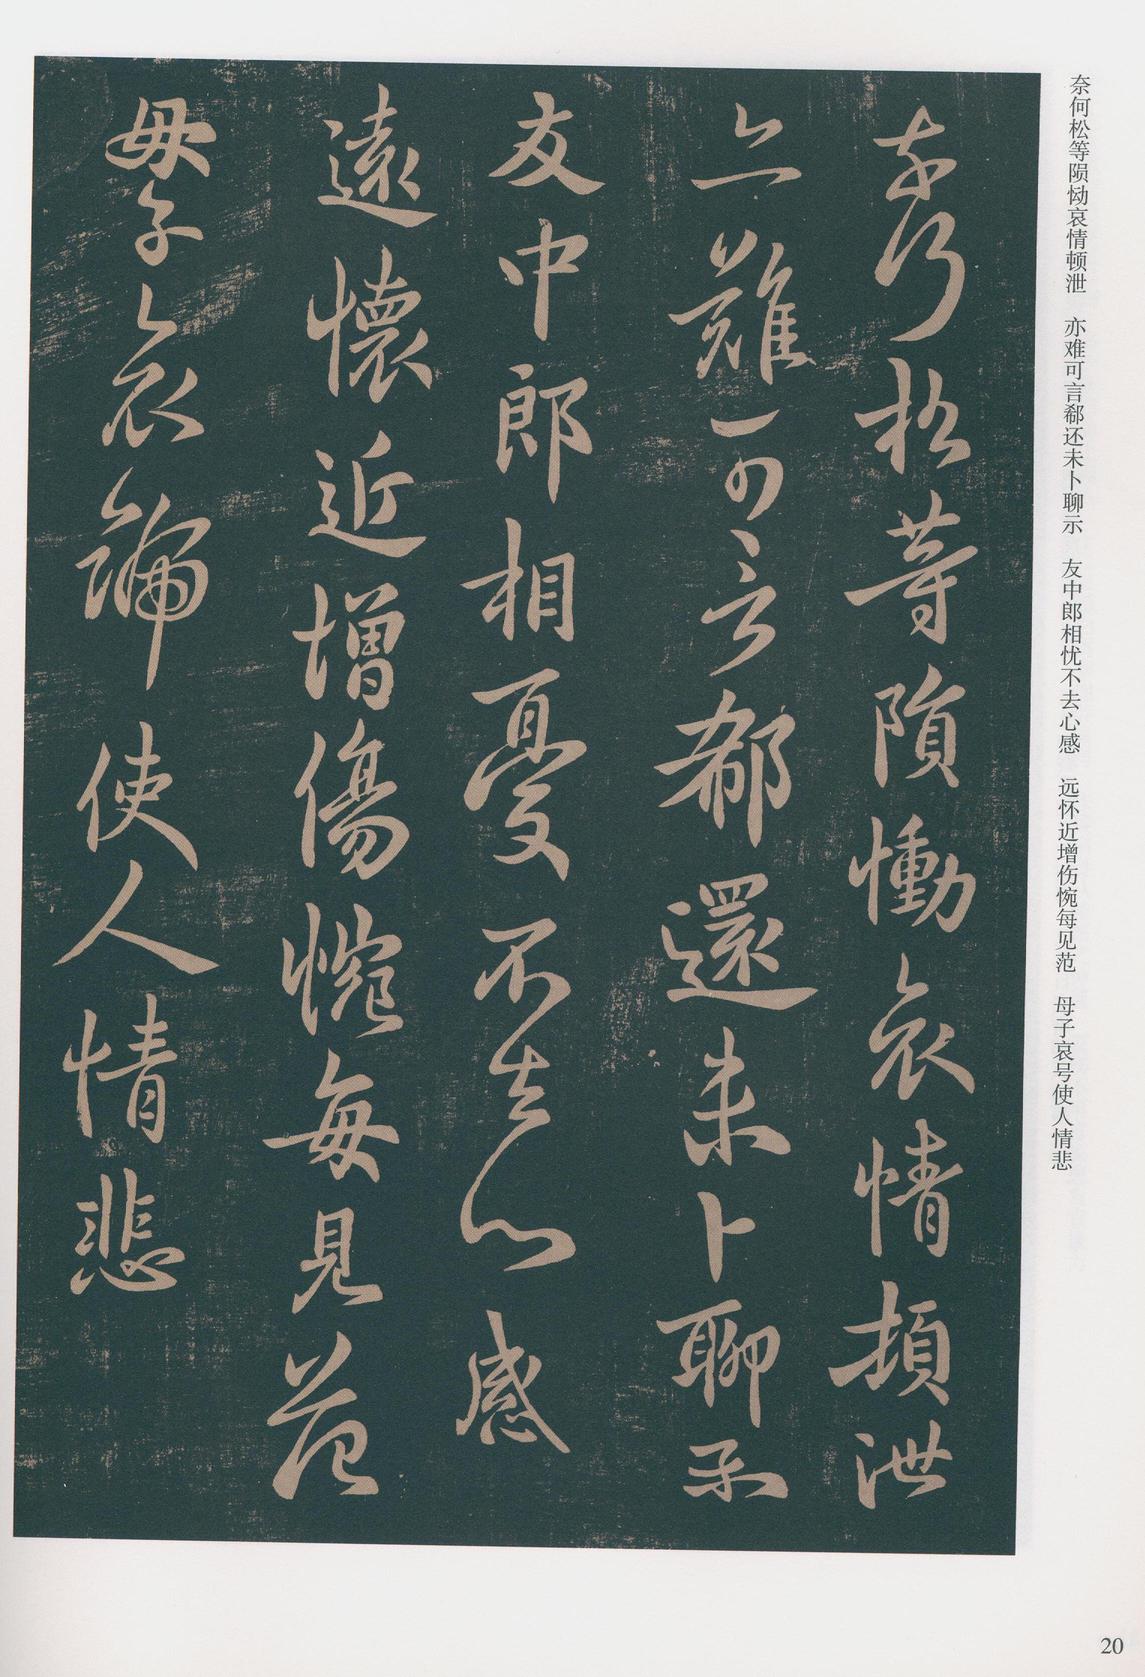 奈何松等陨恸哀情顿泄　亦难可言郗还未卜聊示　友中郎相忧不去心感　远怀近增伤惋每见范　母子哀号使人情悲
奈何松等隕慟哀情頓泄
亦難可言郗還未卜聊示
友中郎相憂不去心感
遠懷近增傷惋每見范
母子哀號使人情悲
20